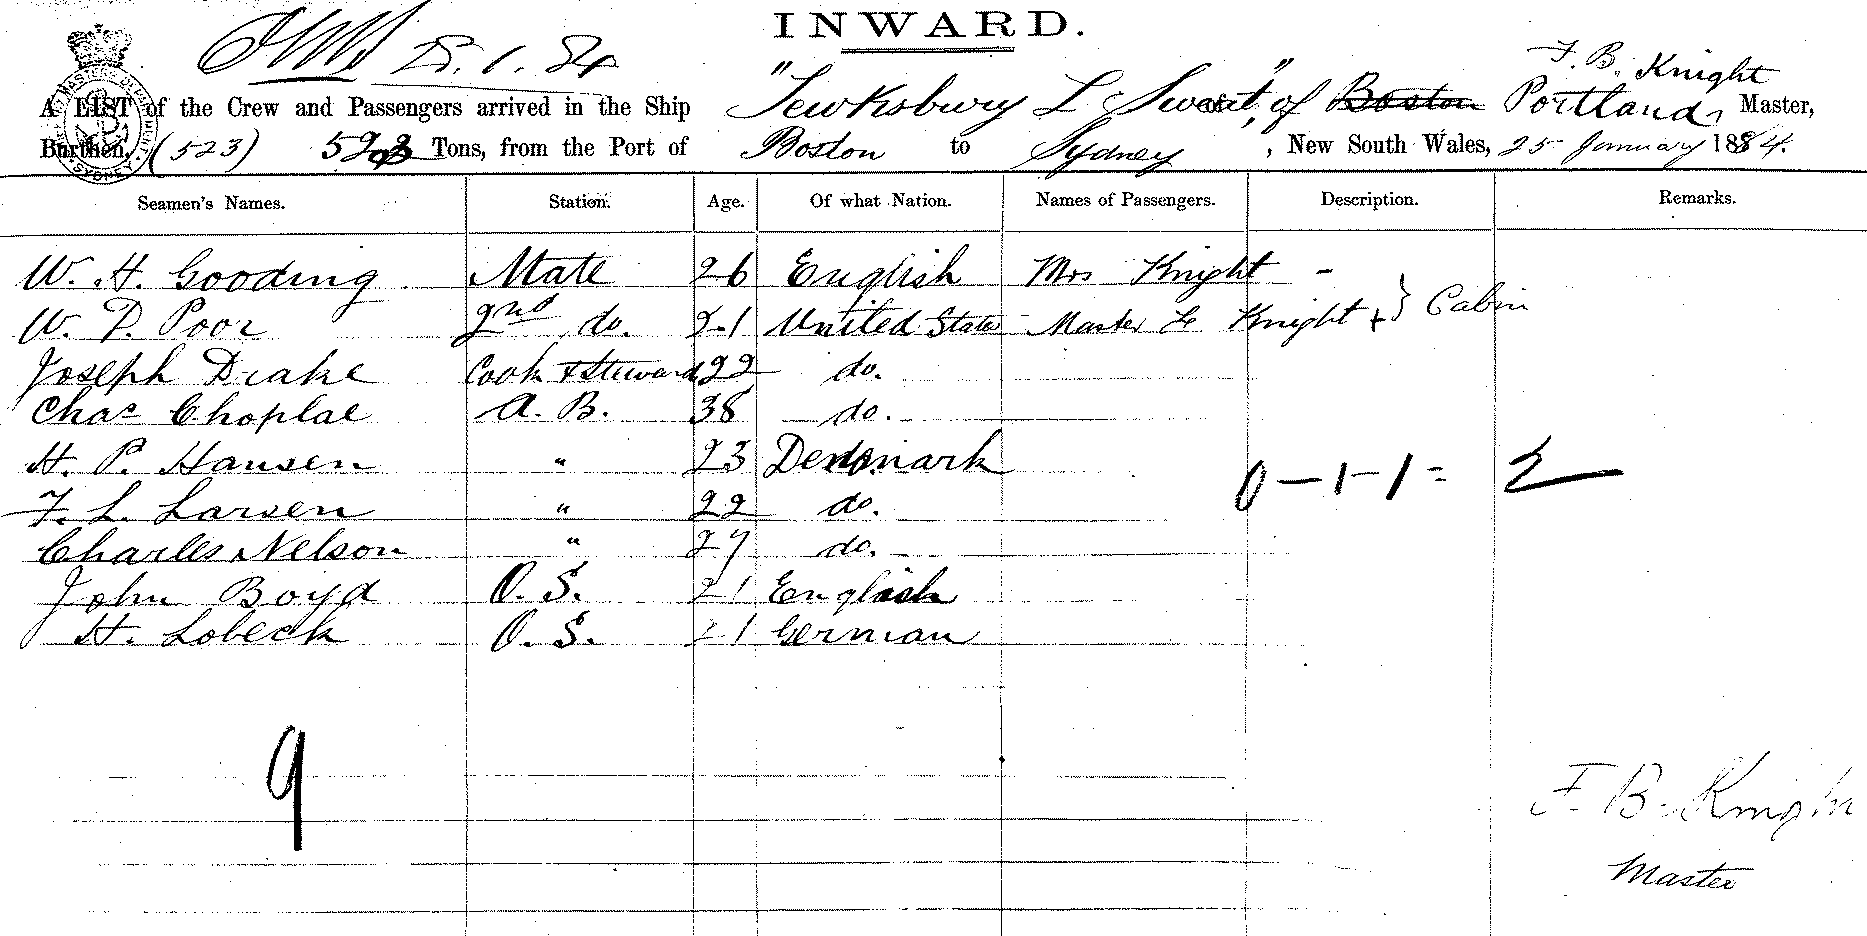 INWARD.
25.1.84
F. B. Knight
A LIST of the Crew and Passengers arrived in the Ship "Tewksbury L Sweat", of Boston Portland, Master,
Burthen, (523) 523 Tons, from the Port of Boston to Sydney, New South Wales, 25 January 1884.
Seamen's Names. Station. Age. Of what Nation. Names of Passengers. Description. Remarks.
W. H. Gooding Mate 26 English Mrs Knight -
W. D. Poor 2nd do. 21 United States Master Knight } Cabin
Joseph Drake Cook & Steward 22 do.
Chas Choplae A. B. 38 do.
H. P. Hansen " 23 Denmark
F. L. Larsen " 22 do.
Charles Nelson " 27 do.
0-1-1 = 2
John Boyd O. S. 21 English
H. Lobeck O. S. 21 German
9
F. B. Knight
Master